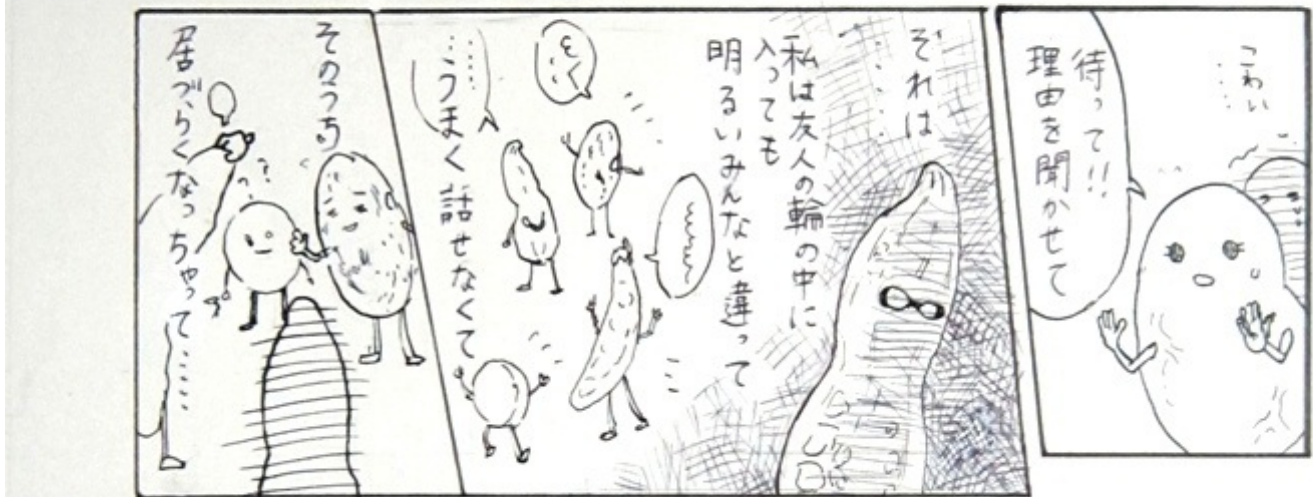 こわい
……
待って!!
理由を聞かせて
それは
……
私は友人の輪の中に
入っても
明るいみんなと違って
……うまく話せなくて
そのうち
居づらくなっちゃって……